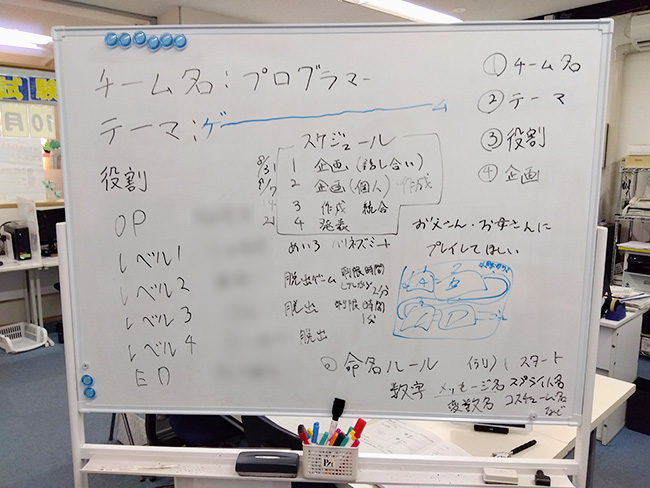 チーム名:プログラマー
テーマ:ゲーム
役割
OP
レベル1
レベル2
レベル3
レベル4
ED
スケジュール
8/31 1 企画(話し合い)
9/7 2 企画(個人) 作成
14 3 作成 統合
21 4 発表
めいろ ハリネズミ
脱出ゲーム 制限時間
2分
脱出 制限時間
1分
脱出
①チーム名
②テーマ
③役割
④企画
お父さん・お母さんに
プレイしてほしい
命名ルール (例)1 スタート
数字 メッセージ名 スプライト名
変数名 コスチューム名
など
試験
10月